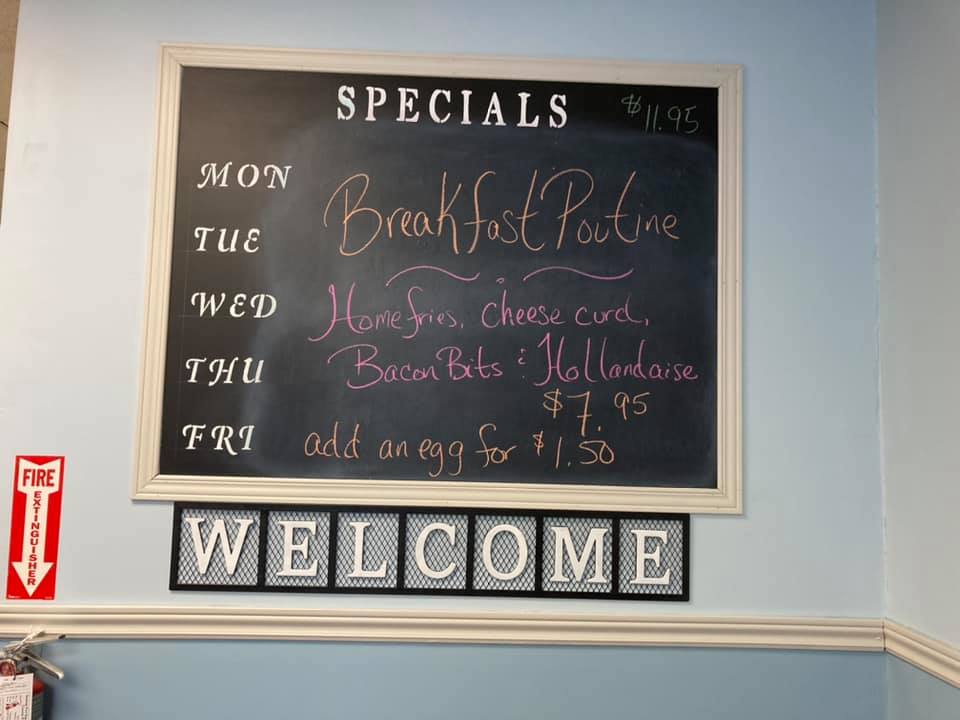 SPECIALS
$11.95
MON
Breakfast Poutine
TUE
WED
Homefries, cheese curd,
THU
Bacon Bits & Hollandaise
$7.95
FRI
add an egg for $1.50
WELCOME
FIRE
EXTINGUISHER